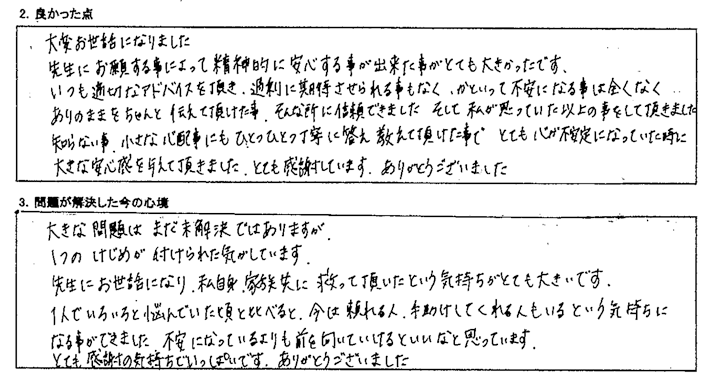 2. 良かった点
大変お世話になりました
先生にお願する事によって精神的に安心する事が出来た事がとても大きかったです、
いつも適切なアドバイスを頂き、過剰に期待させられる事もなく、かといって不安になる事は全くなく
ありのままをちゃんと伝えて頂けた事、そんな所に信頼できました そして私が思っていた以上の事をして頂きました
知らない事、小さな心配事にもひとつひとつ丁寧に答え教えて頂けた事で とても心が不安定になっていた時に
大きな安心感を与えて頂きました、とても感謝しています、ありがとうございました
3. 問題が解決した今の心境
大きな問題は まだ未解決ではありますが、
1つの けじめが 付けられた気がしています、
先生にお世話になり、私自身、家族共に 救って頂いたという気持ちがとても大きいです、
1人でいろいろと悩んでいた頃と比べると、今は頼れる人、手助けしてくれる人もいる という気持ちに
なる事ができました 不安になっているよりも前を向いていけるといいなと思っています、
とても感謝の気持ちでいっぱいです、ありがとうございました